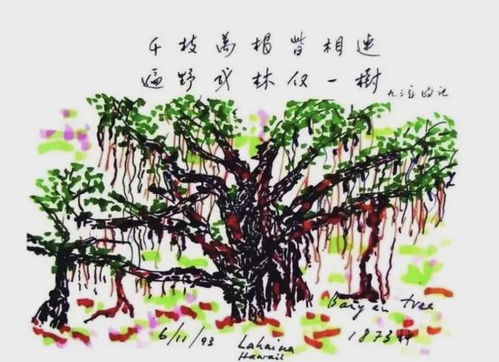 千枝萬根皆相連
遍野成林仅一樹
Banyan tree
1873种
6/11/93
Lahaina
Hawaii